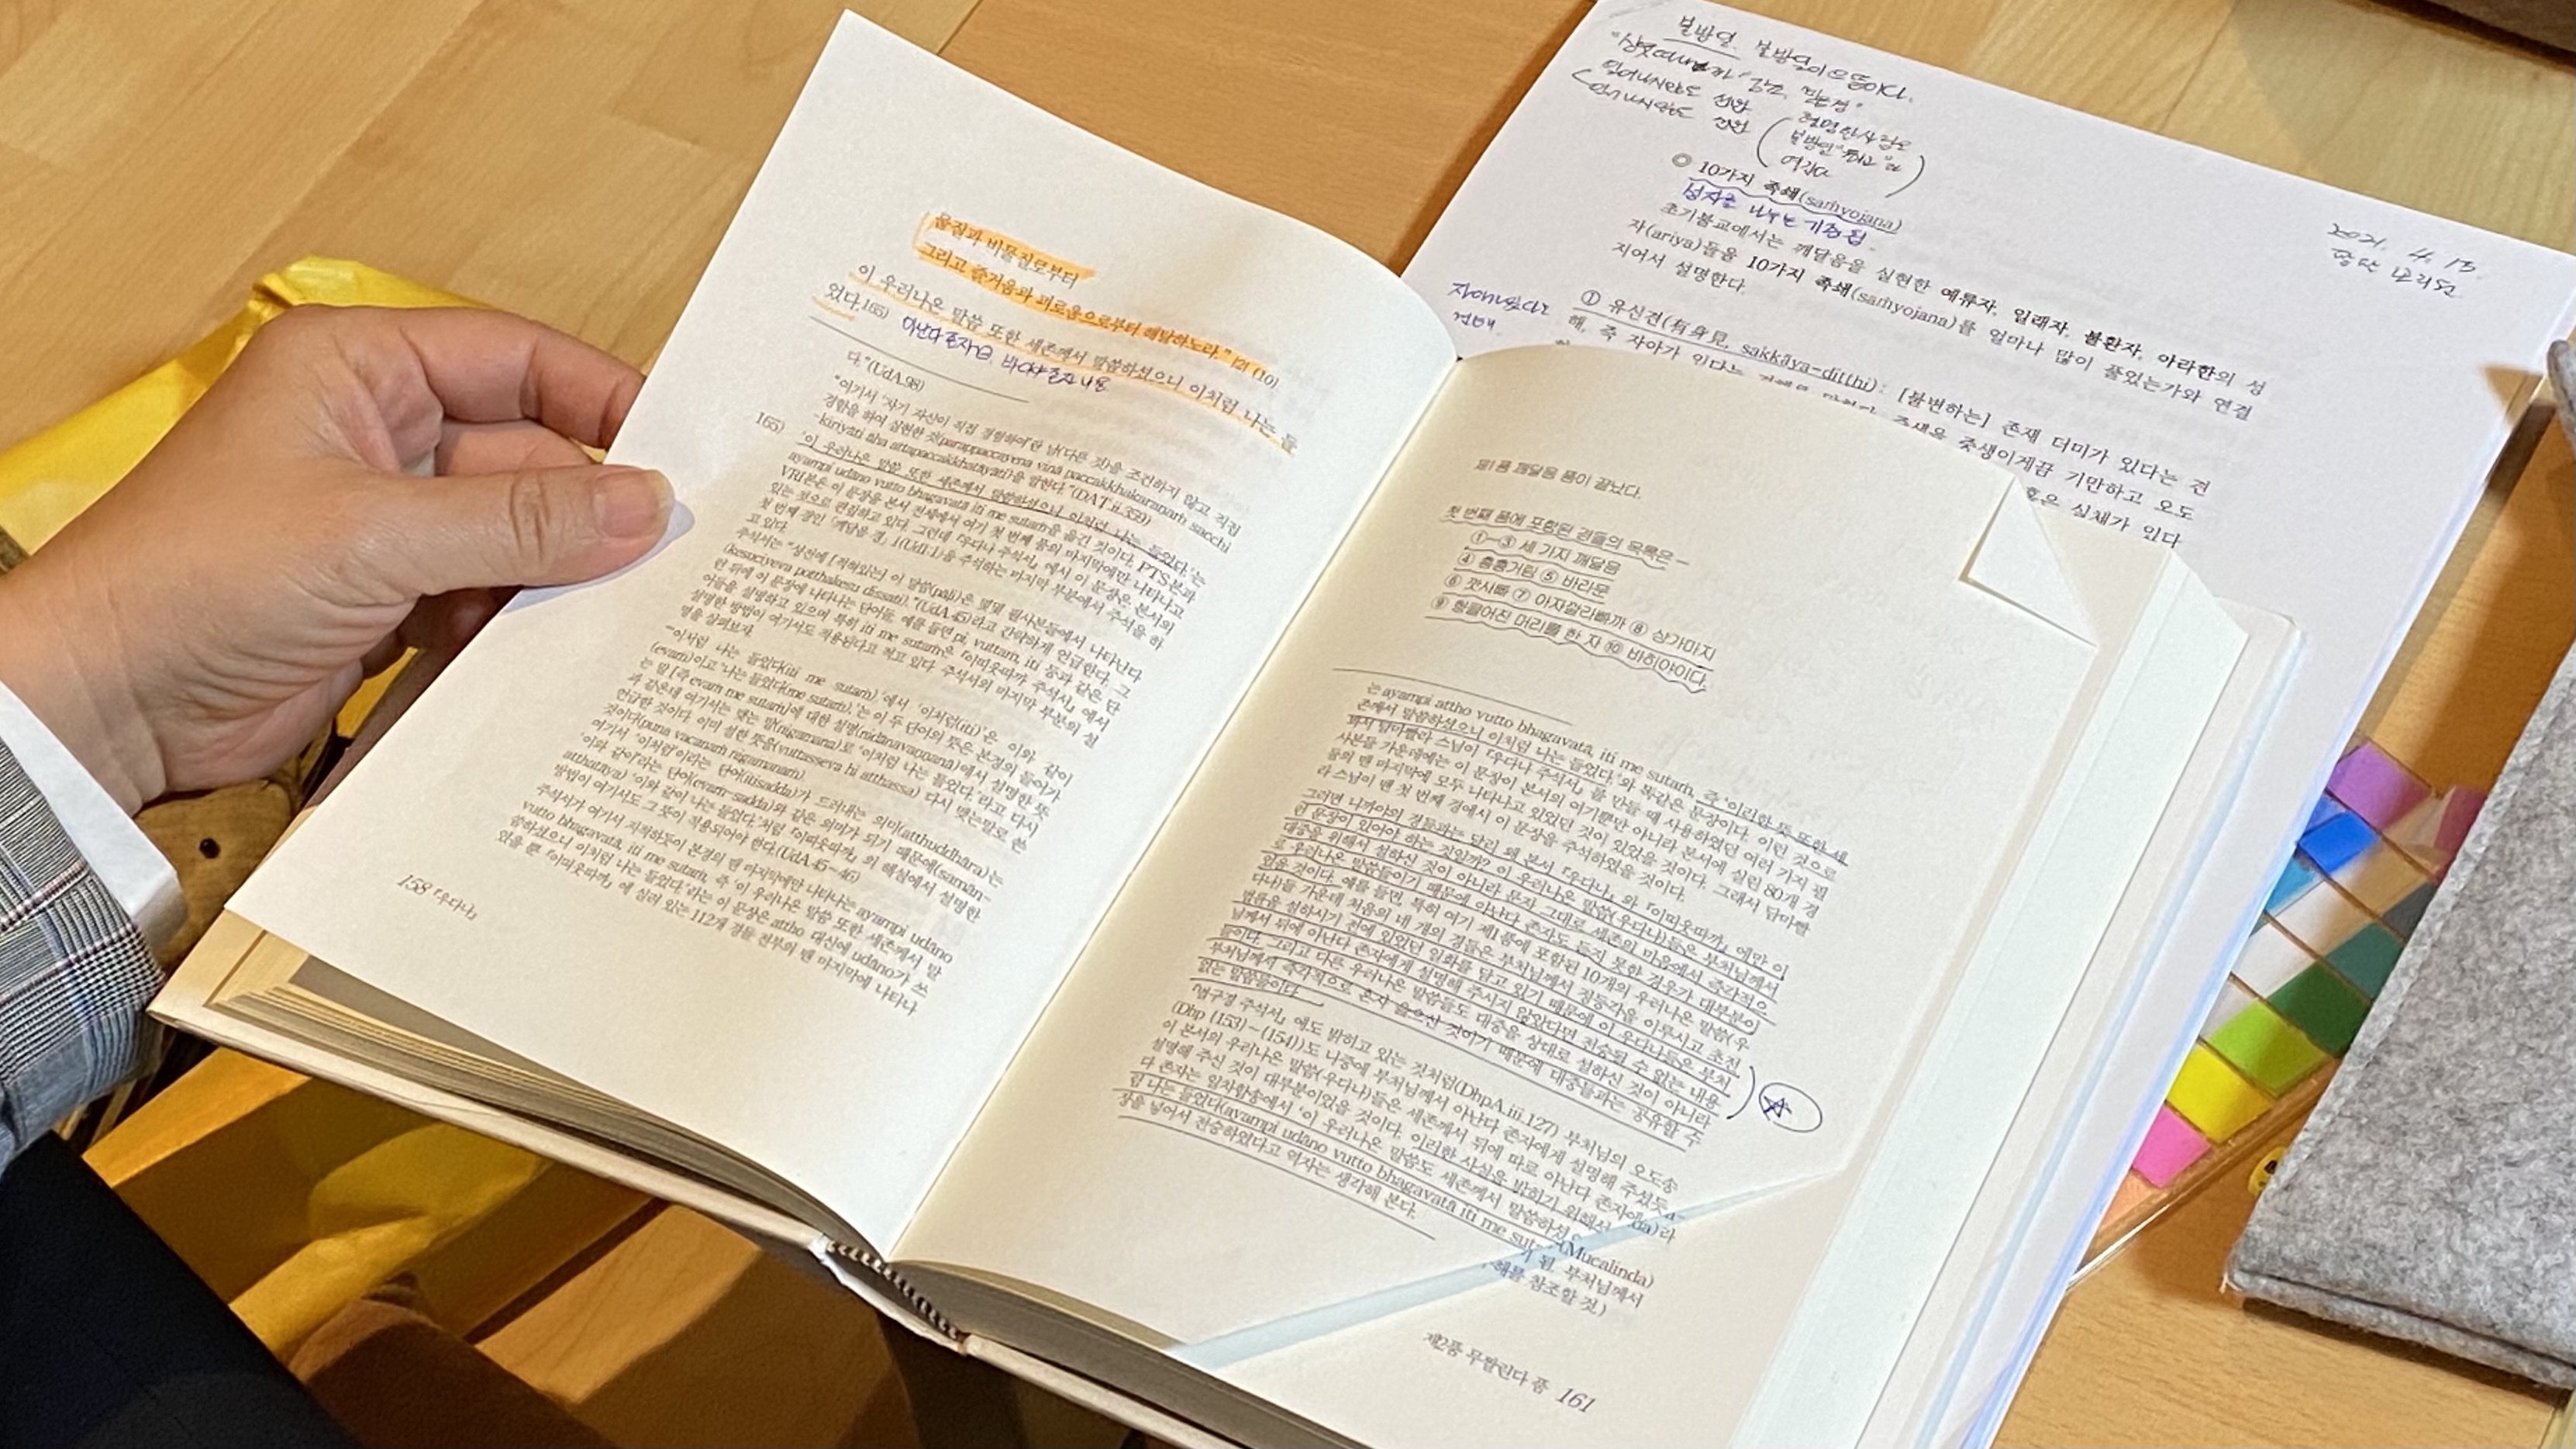 물질과 비물질로부터
그리고 즐거움과 괴로움으로부터 해탈하노라.” |21 (10)
이 우러나온 말씀 또한 세존께서 말씀하셨으니 이처럼 나는 들
었다.165)
다.”(UdA.98)
“여기서 ‘자기 자신이 직접 경험하여’란 남(다른 것)을 조건하지 않고 직접
경험을 하여 실현한 것(parappaccayena vinā paccakkhakaraṇaṁ sacchi
-kiriyāti āha attapaccakkhatāyāti)을 말한다.”(DAṬ.ii.359)
165) ‘이 우러나온 말씀 또한 세존께서 말씀하셨으니 이처럼 나는 들었다.’는
ayampi udāno vutto bhagavatā iti me sutaṁ을 옮긴 것이다. PTS본과
VRI본은 이 문장을 본서 전체에서 여기 첫 번째 품의 마지막에만 나타나고
있는 것으로 편집하고 있다. 그런데 『우다나 주석서』에서 이 문장은 본서의
첫 번째 경인 「깨달음 경」 1(Ud1:1)을 주석하는 마지막 부분에서 주석을 하
고 있다.
주석서는 “성전에 [적혀있는] 이 말씀(pāḷi)은 몇몇 필사본들에서 나타난다
(kesuciyeva potthakesu dissati).”(UdA.45)라고 간략하게 언급한다. 그
런 뒤에 이 문장에 나타나는 단어들, 예를 들면 pi, vuttaṁ, iti 등과 같은 단
어들을 설명하고 있으며 특히 iti me sutaṁ은 『이띠웃따까 주석서』에서
설명한 방법이 여기서도 적용된다고 적고 있다. 주석서의 마지막 부분의 설
명을 살펴보자.
“‘이처럼 나는 들었다(iti me sutaṁ).’에서 ‘이처럼(iti)’은, 이와 같이
(evaṁ)이고 ‘나는 들었다(me sutaṁ).’는 이 두 단어의 뜻은 본경의 들어가
는 말[즉 evaṁ me sutaṁ]에 대한 설명(nidānavaṇṇanā)에서 설명한 뜻
과 같은데 여기서는 맺는 말(nigamana)로 ‘이처럼 나는 들었다.’라고 다시
언급한 것이다. 이미 설한 뜻을(vuttasseva hi atthassa) 다시 맺는말로 쓴
것이다(puna vacanaṁ nigamanaṁ).
여기서 ‘이처럼’이라는 단어(itisadda)가 드러내는 의미(atthuddhāra)는
‘이와 같이’라는 단어(evaṁ-sadda)와 같은 의미가 되기 때문에(samān-
atthatāya) ‘이와 같이 나는 들었다.’처럼 『이띠웃따까』의 해설에서 설명한
방법이 여기서도 그 뜻이 적용되어야 한다.(UdA.45~46)
주석서가 여기서 지적하듯이 본경의 맨 마지막에만 나타나는 ayampi udāno
vutto bhagavatā, iti me sutaṁ, 즉 ‘이 우러나온 말씀 또한 세존께서 말
씀하셨으니 이처럼 나는 들었다.’라는 이 문장은 attho 대신에 udāno가 쓰
였을 뿐 『이띠웃따까』에 실려 있는 112개 경들 전부의 맨 마지막에 나타나
158 『우다나』
불방일. 불방일이 으뜸이다.
현명한 사람은
◎ 10가지 족쇄(saṁyojana)
성자를 나누는 기준 됨.
초기불교에서는 깨달음을 실현한 예류자, 일래자, 불환자, 아라한의 성
자(ariya)들을 10가지 족쇄(saṁyojana)를 얼마나 많이 풀었는가와 연결
지어서 설명한다.
자아가 있다는
견해
① 유신견(有身見, sakkāya-diṭṭhi): [불변하는] 존재 더미가 있다는 견
해, 즉 자아가 있다는 중생을 중생이게끔 기만하고 오도
혹은 실체가 있다
2021. 4. 13
제1품 깨달음 품이 끝났다.
첫 번째 품에 포함된 경들의 목록은 —
①~③ 세 가지 깨달음
④ 흠흠거림 ⑤ 바라문
⑥ 깟사빠 ⑦ 아자깔라빠까 ⑧ 상가마지
⑨ 헝클어진 머리를 한 자 ⑩ 바히야이다.
는 ayampi attho vutto bhagavatā, iti me sutaṁ, 즉 ‘이러한 뜻 또한 세
존께서 말씀하셨으니 이처럼 나는 들었다.’와 똑같은 문장이다. 이런 것으로
봐서 담마빨라 스님이 『우다나 주석서』를 만들 때 사용하였던 여러 가지 필
사본들 가운데에는 이 문장이 본서의 여기뿐만 아니라 본서에 실린 80개 경
들의 맨 마지막에 모두 나타나고 있었던 것이 있었을 것이다. 그래서 담마빨
라 스님이 맨 첫 번째 경에서 이 문장을 주석하였을 것이다.
그러면 니까야의 경들과는 달리 왜 본서 『우다나』와 『이띠웃따까』에만 이
런 문장이 있어야 하는 것일까? 이 우러나온 말씀(우다나)들은 부처님께서
대중을 위해서 설하신 것이 아니라 문자 그대로 세존의 마음에서 즉각적으
로 우러나온 말씀들이기 때문에 아난다 존자도 듣지 못한 경우가 대부분이
었을 것이다. 예를 들면, 특히 여기 제1품에 포함된 10개의 우러나온 말씀(우
다나)들 가운데 처음의 네 개의 경들은 부처님께서 정등각을 이루시고 초전
법륜을 설하시기 전에 있었던 일화를 담고 있기 때문에 이 우다나들은 부처
님께서 뒤에 아난다 존자에게 설명해 주시지 않았다면 전승될 수 없는 내용
들이다. 그리고 다른 우러나온 말씀들도 대중을 상대로 설하신 것이 아니라
부처님께서 즉각적으로 혼자 읊으신 것이기 때문에 대중들과는 공유할 수
없는 말씀들이다.
『법구경 주석서』에도 밝히고 있는 것처럼(DhpA.iii.127) 부처님의 오도송
(Dhp {153}~{154})도 나중에 부처님께서 아난다 존자에게 설명해 주셨듯
이 본서의 우러나온 말씀(우다나)들은 세존께서 뒤에 따로 아난다 존자에게
설명해 주신 것이 대부분이었을 것이다. 이러한 사실을 밝히기 위해서
다 존자는 일차합송에서 ‘이 우러나온 말씀도 세존께서 말씀하셨
럼 나는 들었다(ayampi udāno vutto bhagavatā iti me suta
장을 넣어서 전승하였다고 역자는 생각해 본다.
da)라
(Mucalinda)
된 부처님께서
해를 참조할 것.)
제2품 무짤린다 품 161